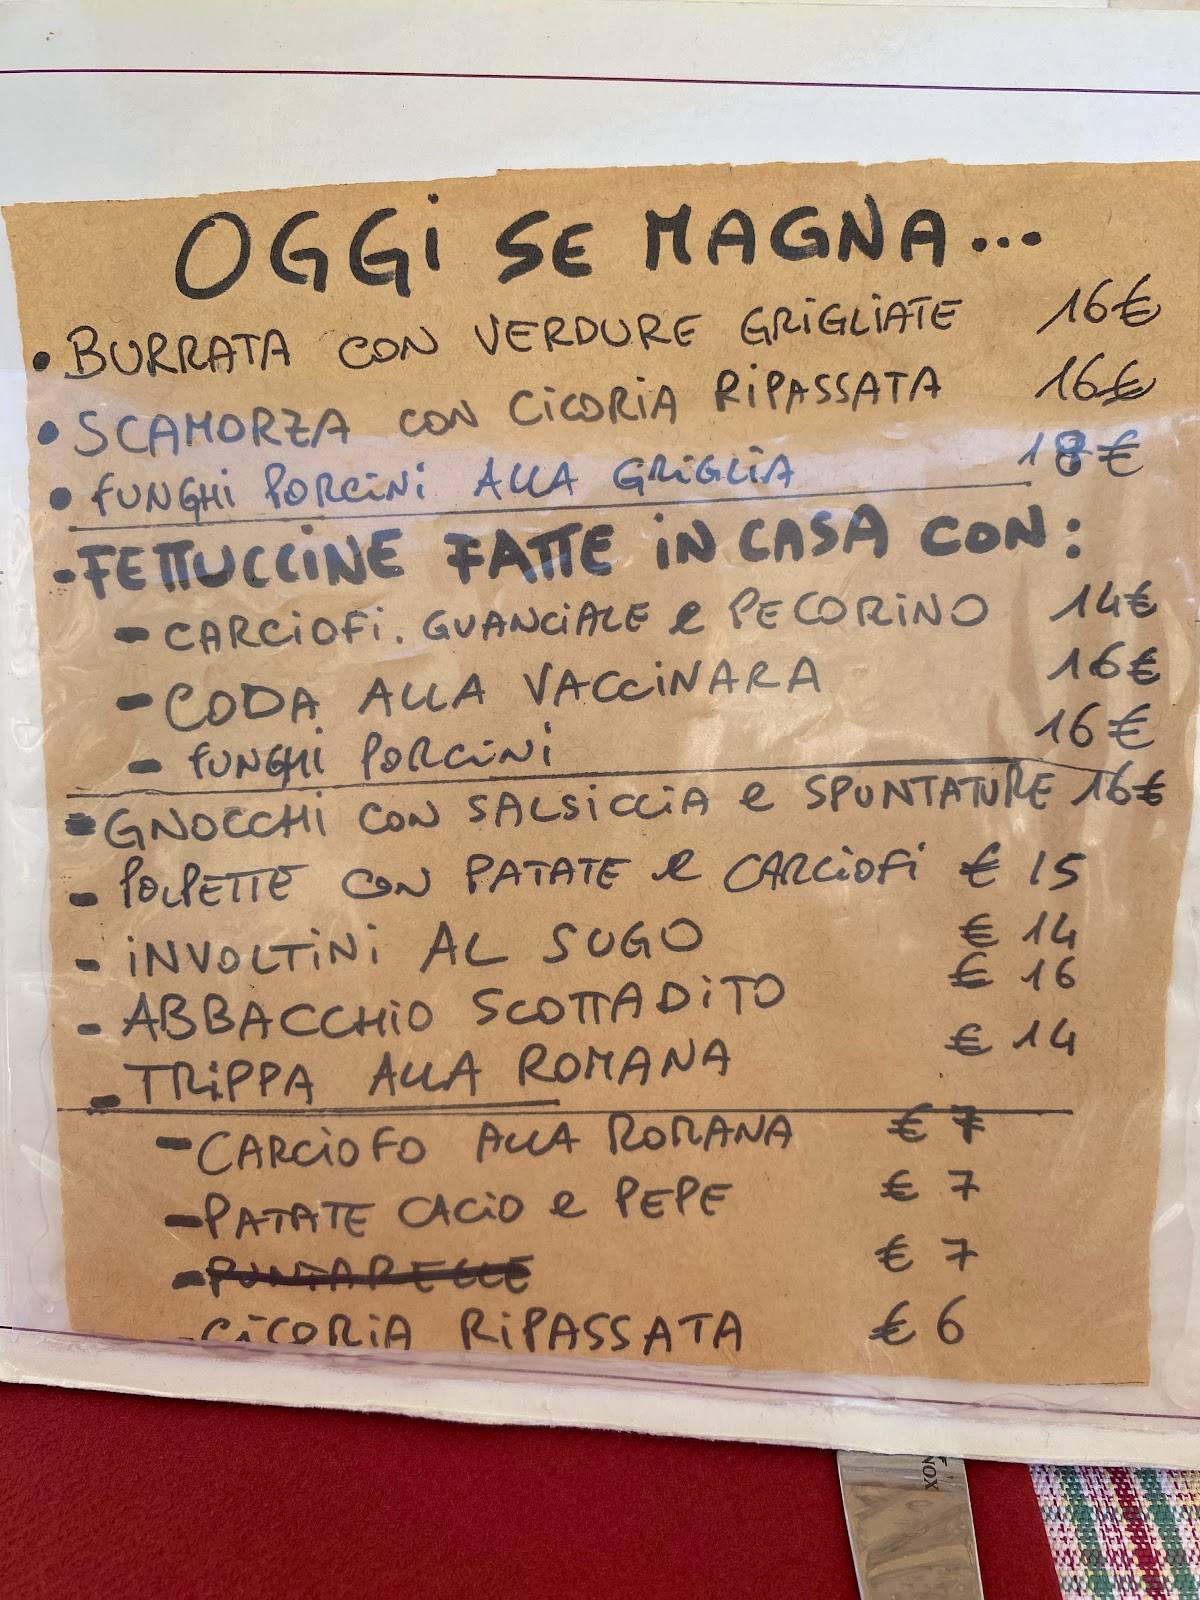 OGGi SE MAGNA...
• BURRATA CON VERDURE GRiGLiATE 16€
• SCAMORZA CON CiCORiA RiPASSATA 16€
• FUNGHi PORCiNi ALLA GRiGLiA 18€
- FETTUCCiNE FATTE iN CASA CON:
- CARCiOFi. GUANCiALE e PECORiNO 14€
- CODA ALLA VACCiNARA 16€
- FUNGHi PORCiNi 16€
- GNOCCHi CON SALSiCCiA e SPUNTATURE 16€
- POLPETTE CON PATATE e CARCiOFi € 15
- iNVOLTiNi AL SUGO € 14
- ABBACCHiO SCOTTADiTO € 16
- TRiPPA ALLA ROMANA € 14
- CARCiOFO ALLA ROMANA € 7
- PATATE CACiO e PEPE € 7
- PUNTARELLE € 7
- CiCORiA RiPASSATA € 6
NOX